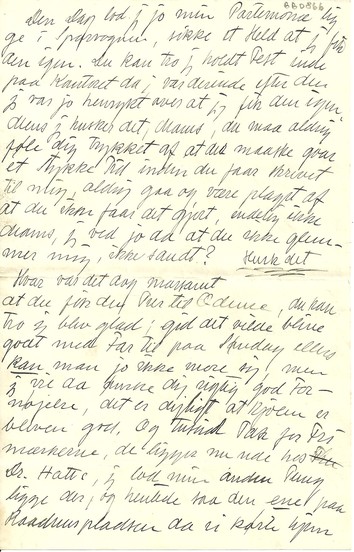 BB0866
Den Dag lod jeg jo min Portemonnæ lig
ge i sporvognen, sikke et Held at jeg fik
den igen. Du kan tro jeg holdt Fest inde
paa Kontoret da jeg var derinde efter den
jeg var jo henrykt over at jeg fik den igen
mens jeg husker det, du maa aldrig
føle dig trykket af at det maaske gaar
et Stykke Tid inden du faar skrevet
til mig, aldrig gaa og være plaget af
at du ikke faar det gjort, endelig ikke
jeg ved jo da at du ikke glem-
mer mig, ikke sandt? Husk det
Hvor var det dog morsomt
at du fik den til Odense, du kan
tro jeg blev glad; gid det vilde blive
godt med Far til paa Søndag ellers
kan man jo ikke more sig, men
jeg vil da ønske dig rigtig god For-
nøjelse, det er dejligt at er
bleven god. Og Tusind Tak for Fri
mærkerne, de ligger nu inde hos
Dr. jeg lod min anden Pung
ligge der, og hentede saa den ene paa
Raadhuspladsen da vi kørte hjem